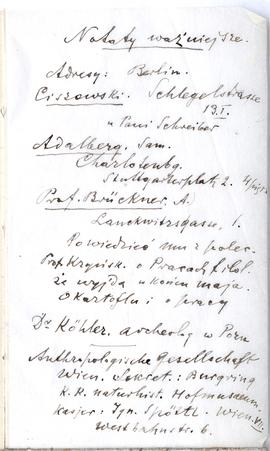 Notaty ważniejsze.
Adresy: Berlin.
Ciszewski. Schlegelstrasse
19. I.
u Pani Schreiber
Adalberg. Sam.
Charlottenbg.
Stuttgarterplatz 2.
Prof. Brückner. A)
Lauckwitzsgasu, 1.
Powiedzieć mu z polec.
Prof. Kryńsk. o Pracach filol.
że wyjdą w końcu maja.
O Kartoflu i o pracy
Dr Köhler. archeolog w Pozn
Anthropologische Gesellschaft
Wien. Sekret.: Burgring
K. K. naturhist. Hofmuseum.
Kasjer: Ign. Spöttl. Wien. VII.
Westbahnstr. 6.